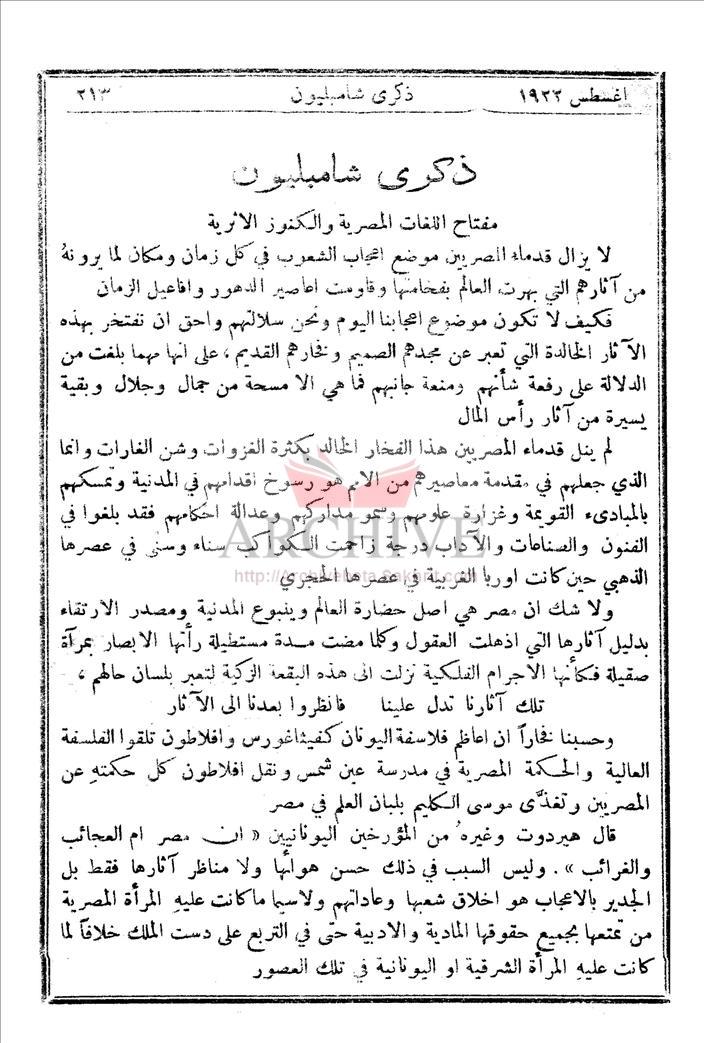 اغسطس ١٩٢٢ ذكرى شامبليون ٢١٣
ذكرى شامبليون
مفتاح اللغات المصرية والكنوز الاثرية
لا يزال قدماء المصريين موضع اعجاب الشعوب في كل زمان ومكان لما يرونهُ
من آثارهم التي بهرت العالم بفخامتها وقاومت اعاصير الدهور وافاعيل الزمان
فكيف لا تكون موضوع اعجابنا اليوم ونحن سلالتهم واحق ان نفتخر بهذه
الآثار الخالدة التي تعبر عن مجدهم الصميم وفخارهم القديم ، على انها مهما بلغت من
الدلالة على رفعة شأنهم ومنعة جانبهم فما هي الا مسحة من جمال وجلال وبقية
يسيرة من آثار رأس المال
لم ينل قدماء المصريين هذا الفخار الخالد بكثرة الغزوات وشن الغارات وانما
الذي جعلهم في مقدمة معاصيرهم من الامم هو رسوخ اقدامهم في المدنية وتمسكهم
بالمبادىء القويمة وغزارة علومهم وسمو مداركهم وعدالة احكامهم فقد بلغوا في
ARCHIVE
الفنون والصناعات والآداب درجة زاحمت الكواكب سناء وسنى في عصرها
http://Archivebeta.Sakhrit.com
الذهبي حين كانت اوربا الغربية في عصرها الحجري
ولا شك ان مصر هي اصل حضارة العالم وينبوع المدنية ومصدر الارتقاء
بدليل آثارها التي اذهلت العقول وكلما مضت مدة مستطيلة رأتها الابصار بمرآة
صقيلة فكأنها الاجرام الفلكية نزلت الى هذه البقعة الزكية لتعبر بلسان حالهم ،
تلك آثارنا تدل علينا فانظروا بعدنا الى الآثار
وحسبنا فخاراً ان اعاظم فلاسفة اليونان كفيثاغورس وافلاطون تلقوا الفلسفة
العالية والحكمة المصرية في مدرسة عين شمس ونقل افلاطون كل حكمتهِ عن
المصريين وتغذَّى موسى الكليم بلبان العلم في مصر
قال هيردوت وغيرهُ من المؤرخين اليونانيين « ان مصر ام العجائب
والغرائب » . وليس السبب في ذلك حسن هوائها ولا مناظر آثارها فقط بل
الجدير بالاعجاب هو اخلاق شعبها وعاداتهم ولاسيما ماكانت عليهِ المرأة المصرية
من تمتعها بجميع حقوقها المادية والادبية حتى في التربع على دست الملك خلافاً لما
كانت عليهِ المرأة الشرقية او اليونانية في تلك العصور